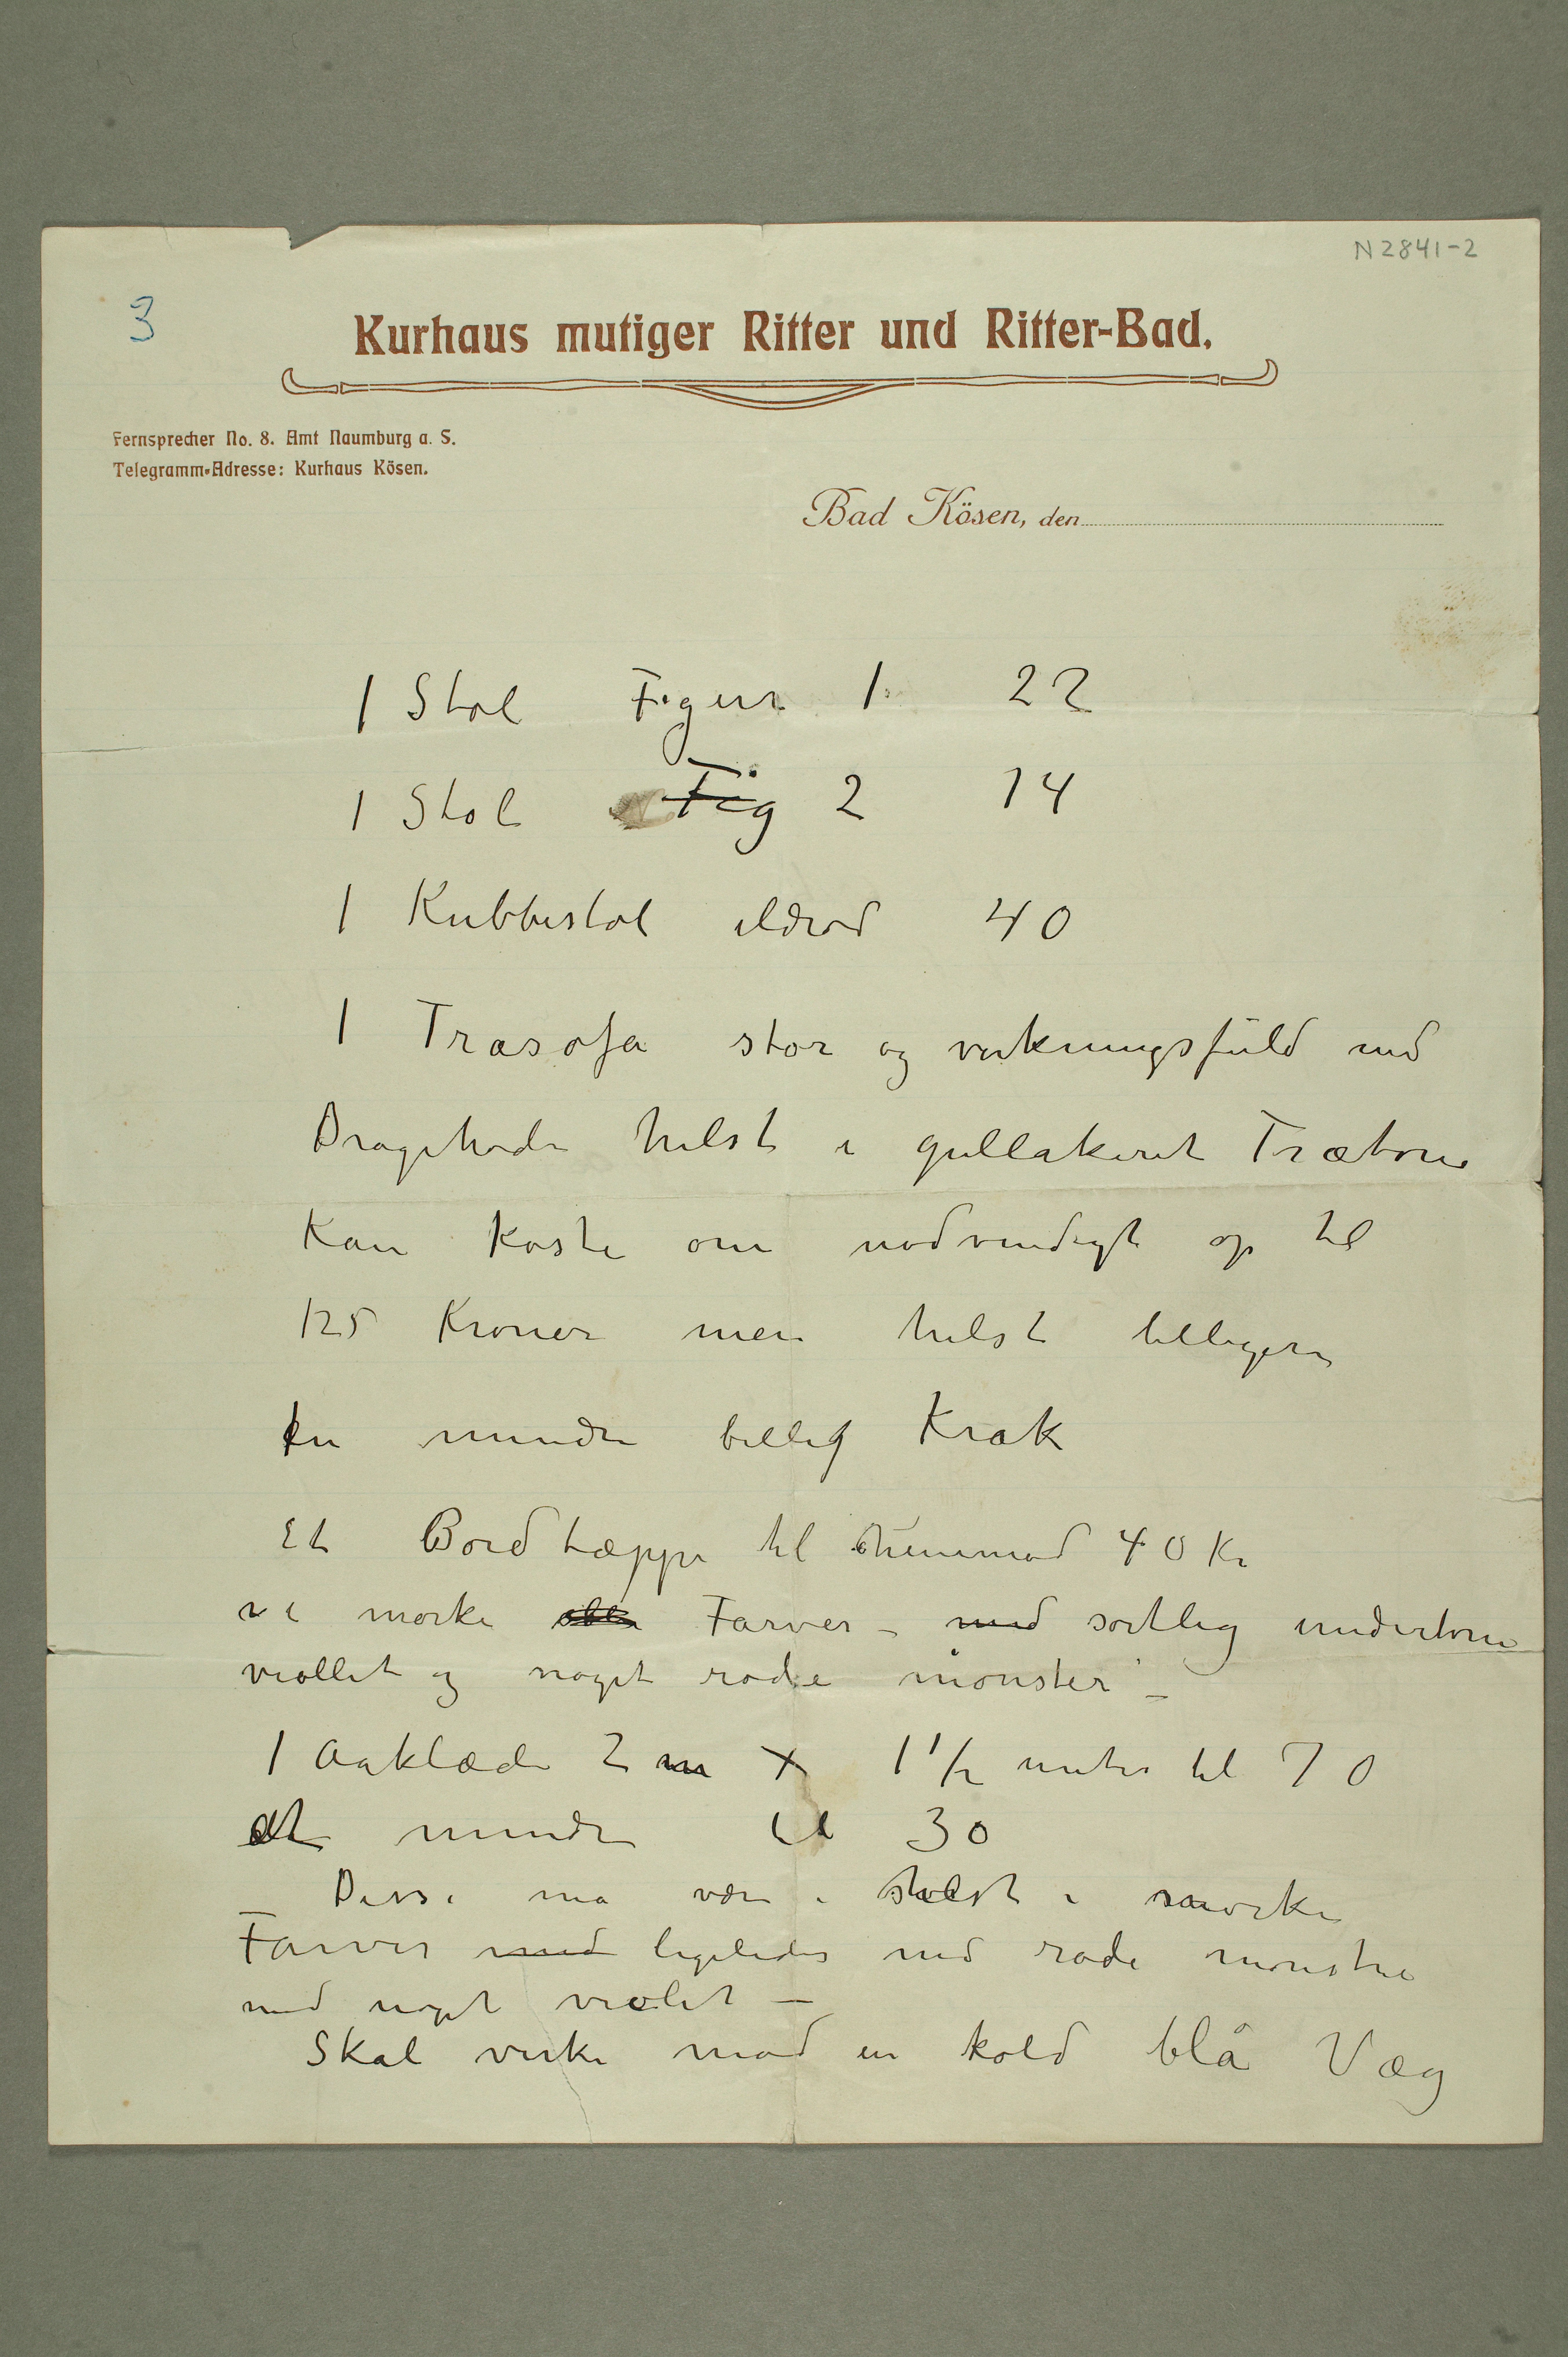 N 2841-2
3
Kurhaus mutiger Ritter und Ritter-Bad.
Fernsprecher No. 8. Amt Naumburg a. S.
Telegramm-Adresse: Kurhaus Kösen.
Bad Kösen, den
1 Stol Figur 1 22
1 Stol Fig 2 14
1 Kubbestol ildrød 40
1 Træsofa stor og virkningsfuld med
Dragehode helst i gullakeret Trætone
Kan koste om nødvendigt op til
125 Kroner men helst billigere
En mindre billig Krak
Et Bordtæppe til henimod 40 Kr
i mørke Farver – med sortlig undertone
viollet og noget røde mønster –
1 Aaklæde 2 m × 1 1/2 meter til 70
et mindre til 30
Disse må være i helst i mørke
Farver med ligeledes med røde mønstre
med noget violet –
Skal virke mod en kold blå Væg